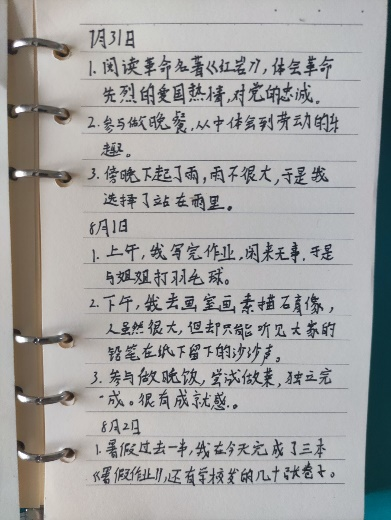 7月31日
1.阅读革命名著《红岩》,体会革命
先烈的爱国热情,对党的忠诚。
2.参与做晚餐,从中体会到劳动的乐
趣。
3.傍晚下起了雨,雨不很大,于是我
选择了站在雨里。
8月1日
1.上午,我写完作业,闲来无事,于是
与姐姐打羽毛球。
2.下午,我去画室画素描石膏像,
人虽然很大,但却只能听见大家的
铅笔在纸下留下的沙沙声。
3.参与做晚饭,尝试做菜,独立完
成。很有成就感。
8月2日
1.暑假过去一半,我在今天完成了三本
《暑假作业》,还有学校发的几十张卷子。